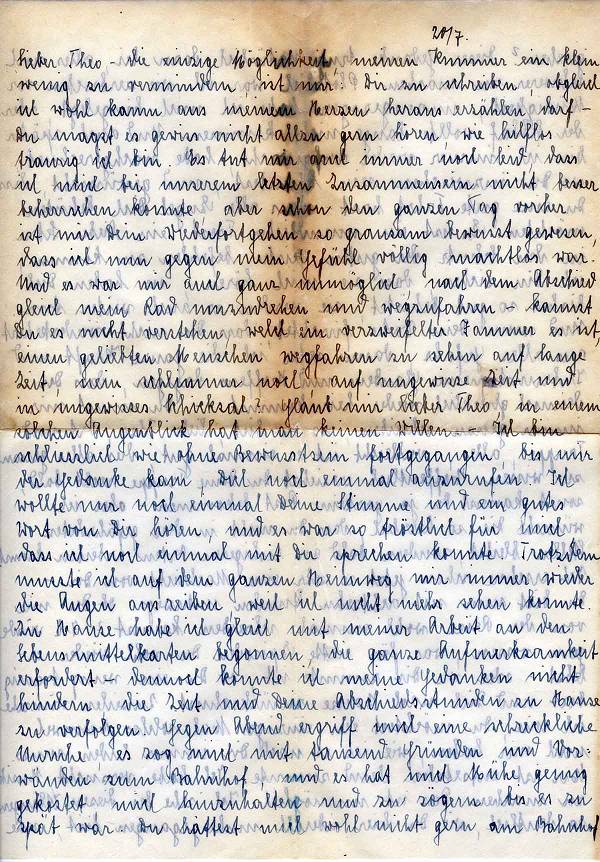 20/7.
Lieber Theo – die einzige Möglichkeit, meinen Kummer ein klein
wenig zu vermindern, ist mir: Dir zu schreiben, obgleich
ich wohl kaum aus meinem Herzen heraus erzählen darf –
du magst es gewiss nicht allzu gern hören, wie hilflos
traurig ich bin. Es tut mir auch immer noch leid, dass
ich mich bei unserem letzten Zusammensein nicht besser
beherrschen konnte – aber schon den ganzen Tag vorher
ist mir Dein Wiederfortgehen so grausam bewusst gewesen,
dass ich nun gegen mein Gefühl völlig machtlos war.
Und es war mir auch ganz unmöglich, nach dem Abschied
gleich mein Rad umzudrehen und wegzufahren – kannst
Du es nicht verstehen, welch ein verzweifelter Jammer es ist,
einen geliebten Menschen wegfahren zu sehen auf lange
Zeit, nein schlimmer noch – auf ungewisse Zeit und
in ungewisses Schicksal? Glaub mir lieber Theo, in einem
solchen Augenblick hat man keinen Willen. – Ich bin
schliesslich wie ohne Bewusstsein fortgegangen, bis mir
der Gedanke kam, Dich noch einmal anzurufen. Ich
wollte nur noch einmal Deine Stimme und ein gutes
Wort von Dir hören, und es war so tröstlich für mich,
dass ich noch einmal mit Dir sprechen konnte. Trotzdem
musste ich auf dem ganzen Heimweg mir immer wieder
die Augen ausreiben, weil ich nicht mehr sehen konnte.
Zu Hause habe ich gleich mit meiner Arbeit an den
Lebensmittelkarten begonnen, die ganze Aufmerksamkeit
erfordert – dennoch konnte ich meine Gedanken nicht
hindern, die Zeit und Deine Abschiedsstunden zu Hause
zu verfolgen. Gegen Abend ergriff mich eine schreckliche
Unruhe – es zog mich mit tausend Gründen und Vor-
wänden zum Bahnhof, und es hat mich Mühe genug
gekostet, mich hinzuhalten und zu zögern bis es zu
spät war. Du hättest mich wohl nicht gern am Bahnhof